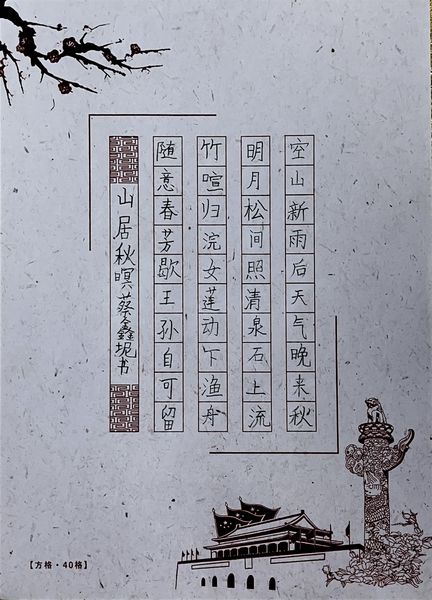 空山新雨后天气晚来秋
明月松间照清泉石上流
竹喧归浣女莲动下渔舟
随意春芳歇王孙自可留
山居秋暝蔡鑫坭书
【方格·40格】